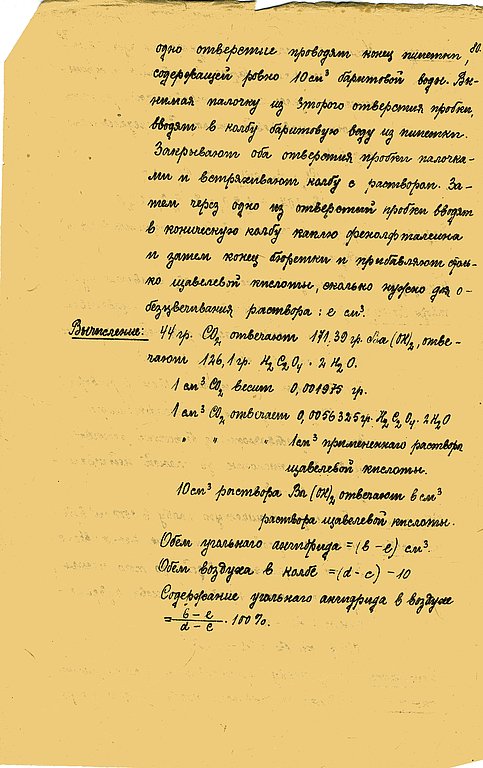 80.
одно отверстие проводят конец пипетки,
содержащей ровно 10 см³ баритовой воды. Вы-
нимая палочку из второго отверстия пробки,
вводят в колбу баритовую воду из пипетки.
Закрывают оба отверстия пробки палочка-
ми и встряхивают колбу с раствором. За-
тем через одно из отверстий пробки вводят
в коническую колбу каплю фенолфталеина
и затем конец бюретки и прибавляют столь-
ко щавелевой кислоты, сколько нужно для о-
безцвечивания раствора: е см³.
Вычисление: 44 гр. CO₂ отвечают 171,39 гр. Ba(OH)₂, отве-
чают 126,1 гр. H₂C₂O₄ · 2H₂O.
1 см³ CO₂ весит 0,001975 гр.
1 см³ CO₂ отвечает 0,0056325 гр. H₂C₂O₄ · 2H₂O
" " 1 см³ примененного раствора
щавелевой кислоты.
10 см³ раствора Ba(OH)₂ отвечают в см³
раствора щавелевой кислоты.
Обем угольного ангидрида = (в – е) см³.
Обем воздуха в колбе = (d – c) – 10
Содержание угольного ангидрида в воздухе
= в – е / d – c · 100%.